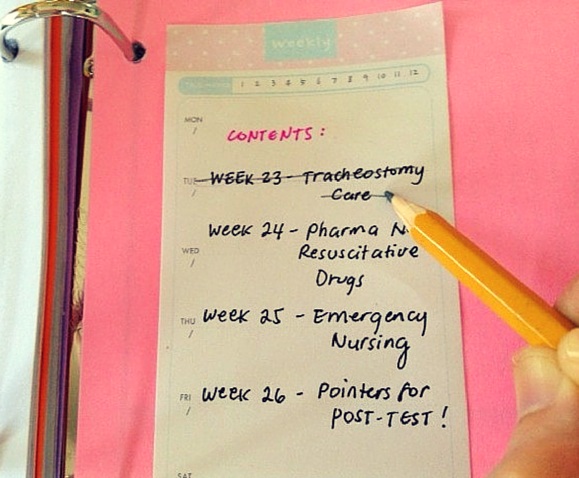 weekly
1 2 3 4 5 6 7 8 9 10 11 12
MON
/
CONTENTS:
TUE
/
WEEK 23 - Tracheostomy
Care
Week 24 - Pharma
WED
/
Resuscitative
Drugs
THU
/
Week 25 - Emergency
Nursing
FRI
/
Week 26 - Pointers for
POST-TEST!
SAT